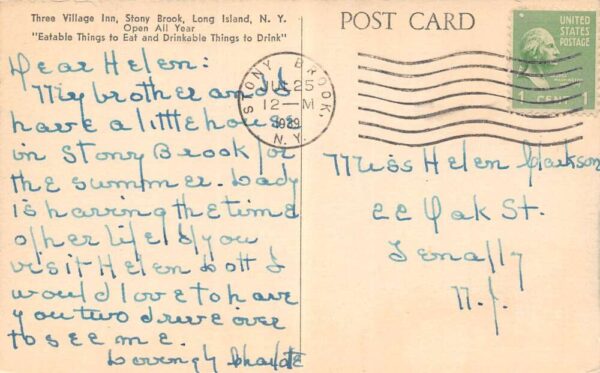 Three Village Inn, Stony Brook, Long Island, N. Y.
Open All Year
"Eatable Things to Eat and Drinkable Things to Drink"
POST CARD
UNITED
STATES
POSTAGE
1 CENT 1
STONY BROOK,
25
12—M
1939
N.Y.
Dear Helen:
My brother and I
have a little house
in Stony Brook for
the summer. Lady
is having the time
of her life. If you
visit Helen Lott I
would love to have
you two drive over
to see me.
Lovingly Charlotte
Miss Helen Clarkson
22 Oak St.
Tenafly
N.J.